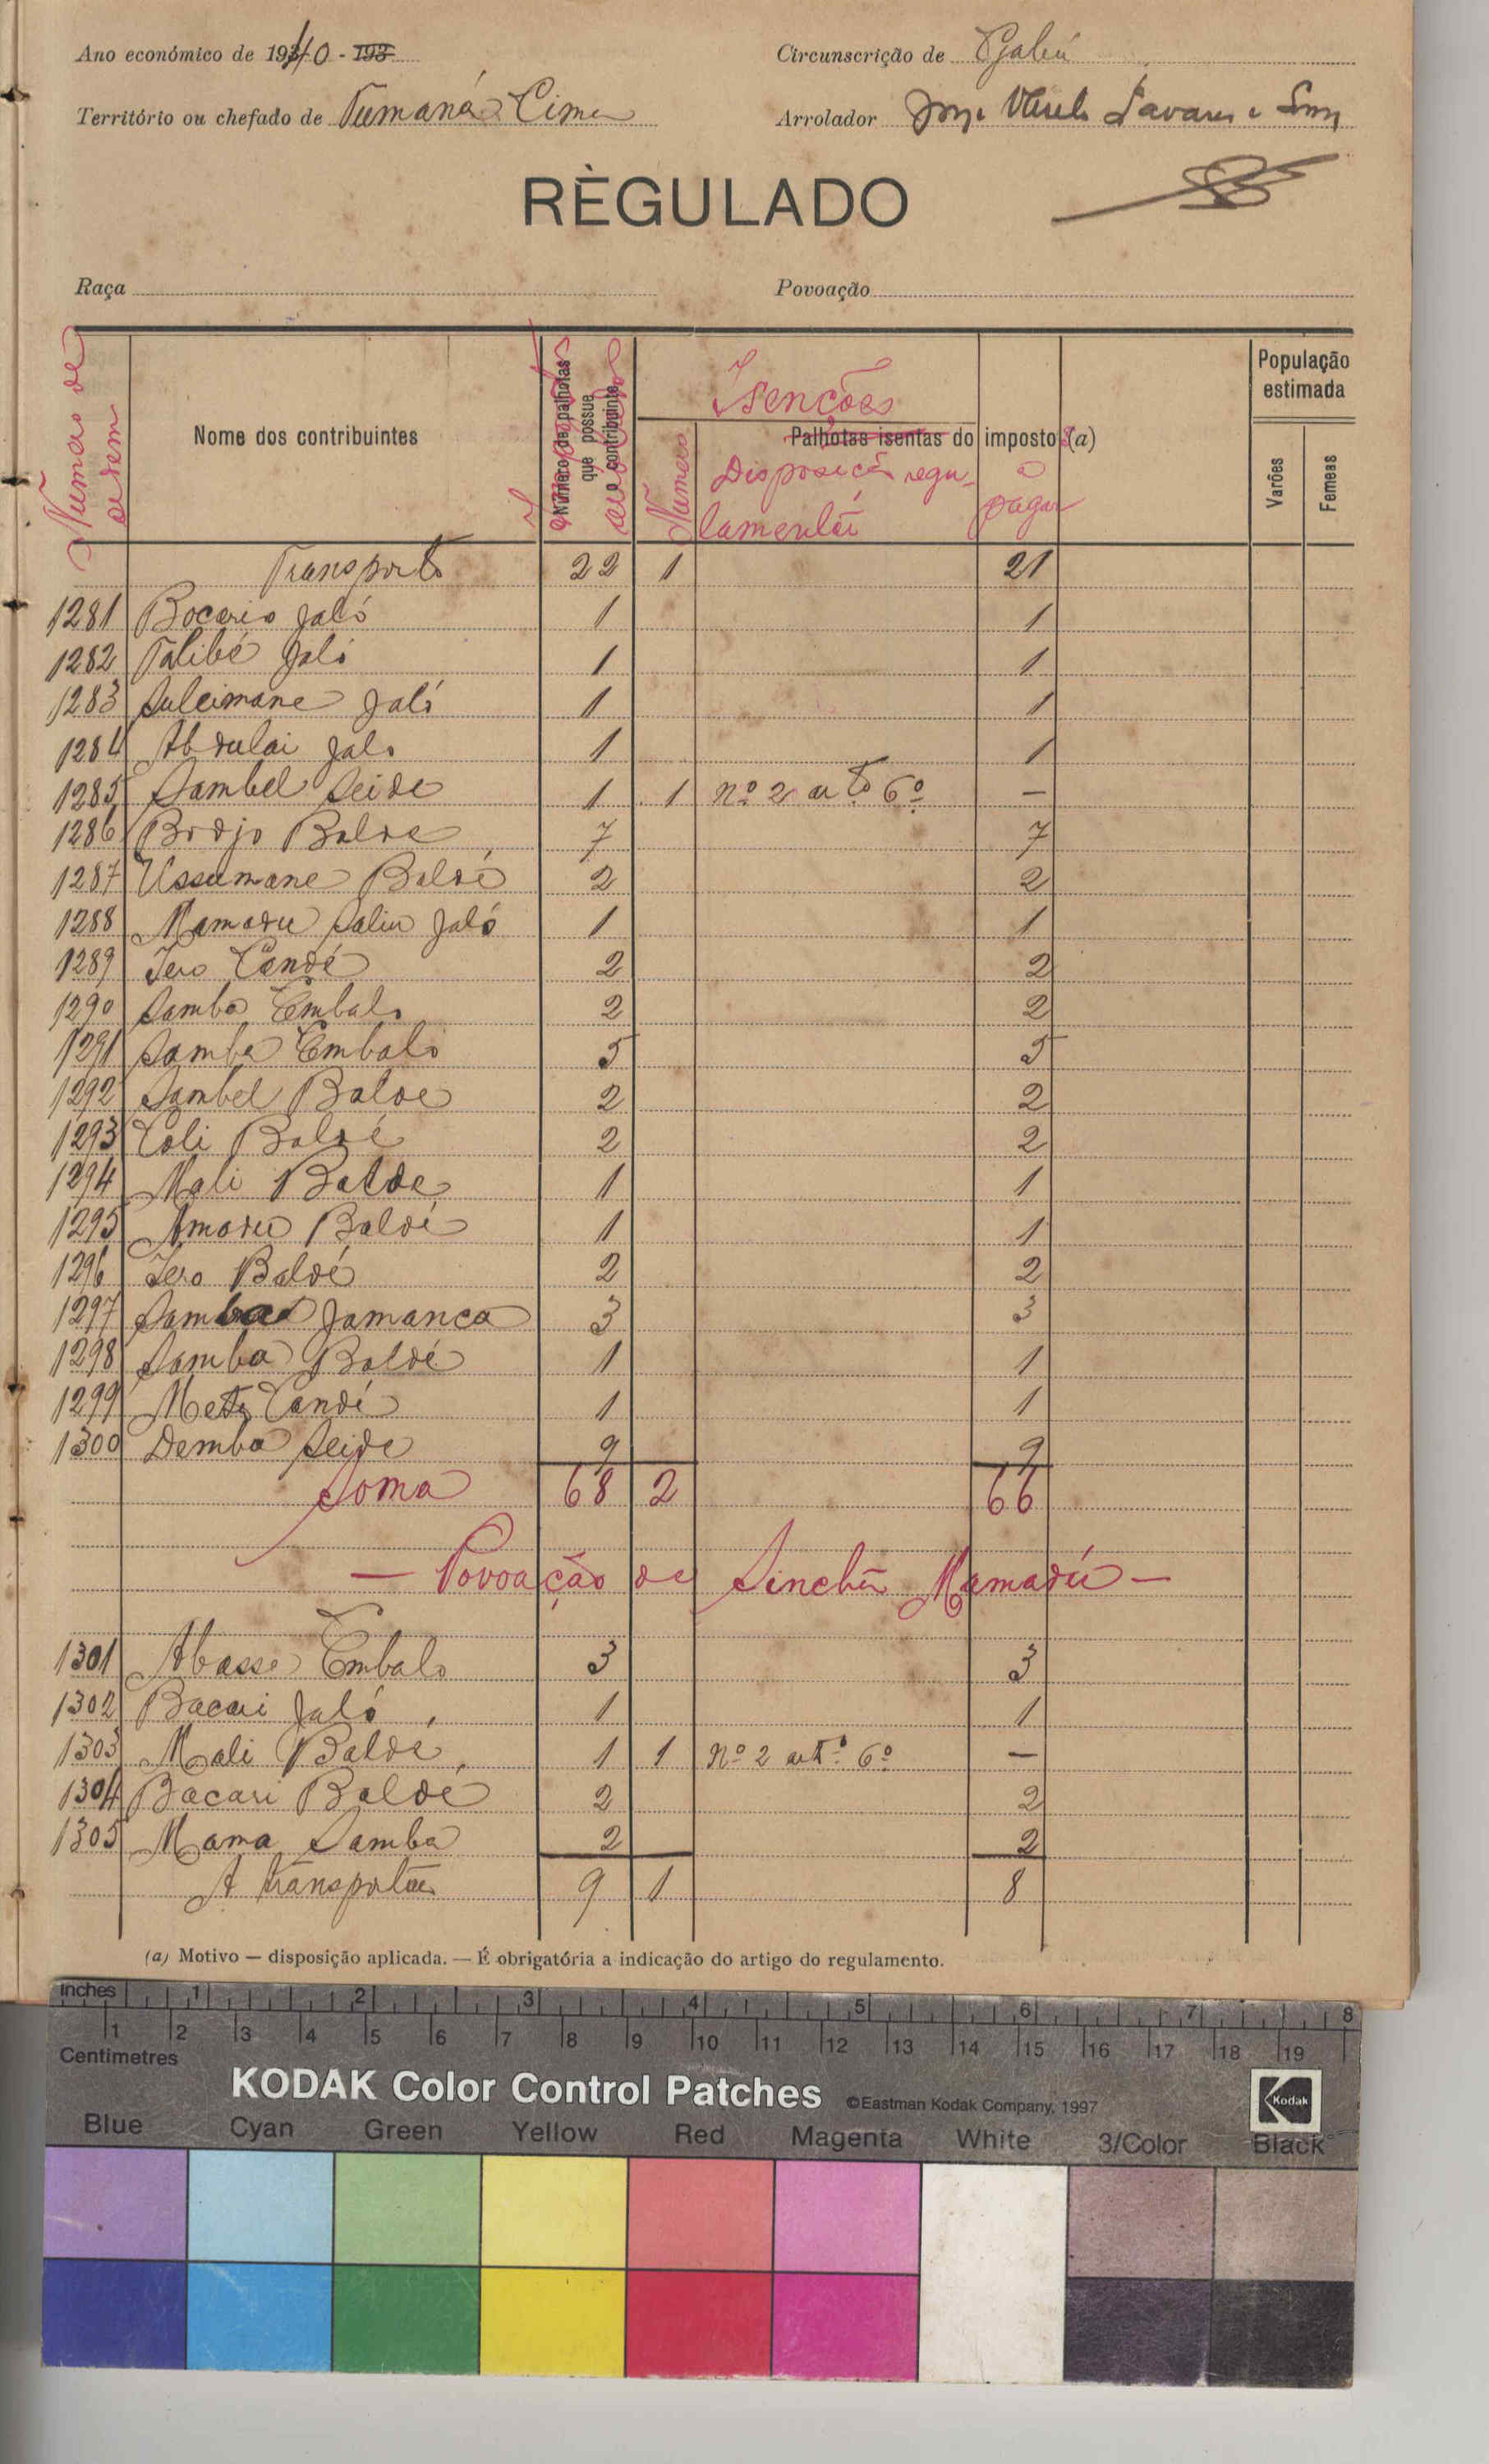 Ano económico de 1940 - 193
Circunscrição de Gabú
Território ou chefado de Tumaná Cima
Arrolador Tavares e
RÈGULADO
Raça
Povoação
Numero de ordem
Nome dos contribuintes
Número de palhotas que possue o contribuinte
Isenções
Palhotas isentas do impostos (a)
Numero
Disposição regulamentar
a pagar
População estimada
Varões
Femeas
Transporte 22 1 21
1281 Bocario Jaló 1 1
1282 Talibé Jaló 1 1
1283 Suleimane Jaló 1 1
1284 Abdulai Jalo 1 1
1285 Sambel Seide 1 1 nº 2 artº 6º —
1286 Bodjo Balde 7 7
1287 Ussumane Baldé 2 2
1288 Mamadu Saliu Jaló 1 1
1289 Iero Candé 2 2
1290 Samba Embalo 2 2
1291 Samba Embaló 5 5
1292 Sambel Balde 2 2
1293 Coli Baldé 2 2
1294 Mali Balde 1 1
1295 Amadu Baldé 1 1
1296 Iero Baldé 2 2
1297 Samba Jamanca 3 3
1298 Samba Baldé 1 1
1299 Meta Candé 1 1
1300 Demba Seide 9 9
Soma 68 2 66
— Povoação de Sinchã Mamadú —
1301 Abasse Embalo 3 3
1302 Bacari Jaló 1 1
1303 Mali Balde 1 1 nº 2 artº 6º —
1304 Bacari Baldé 2 2
1305 Mama Samba 2 2
A transportar 9 1 8
(a) Motivo — disposição aplicada. — É obrigatória a indicação do artigo do regulamento.
inches 1 2 3 4 5 6 7 8
1 2 3 4 5 6 7 8 9 10 11 12 13 14 15 16 17 18 19
Centimetres
KODAK Color Control Patches ©Eastman Kodak Company, 1997
Kodak
Blue Cyan Green Yellow Red Magenta White 3/Color Black